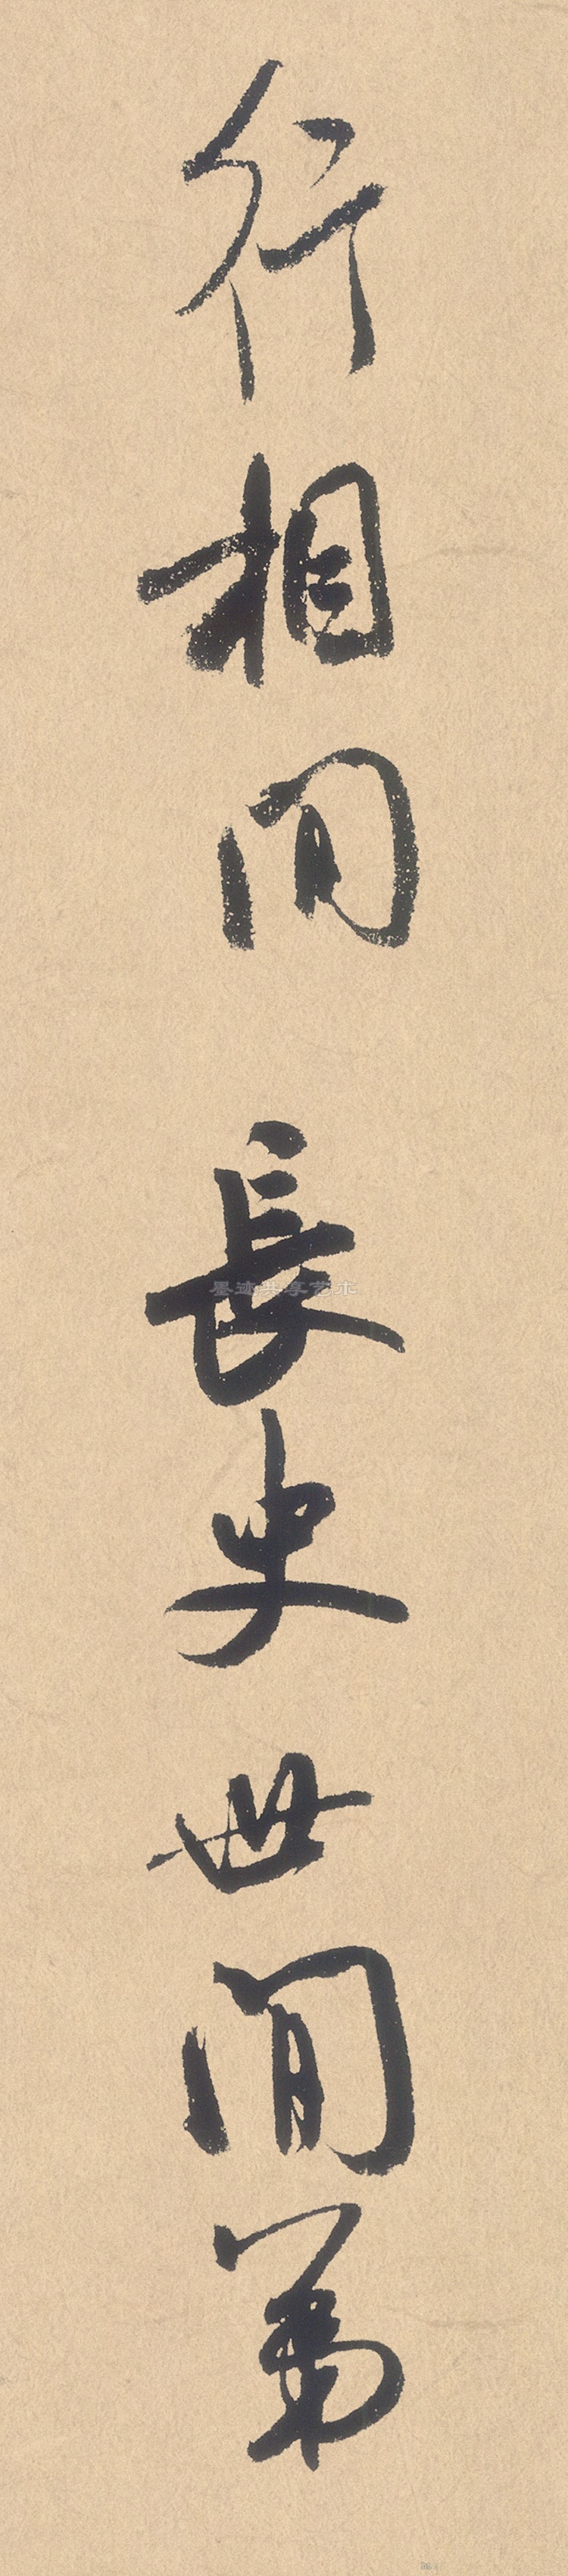 行相間長史世間第
墨迹共享艺术